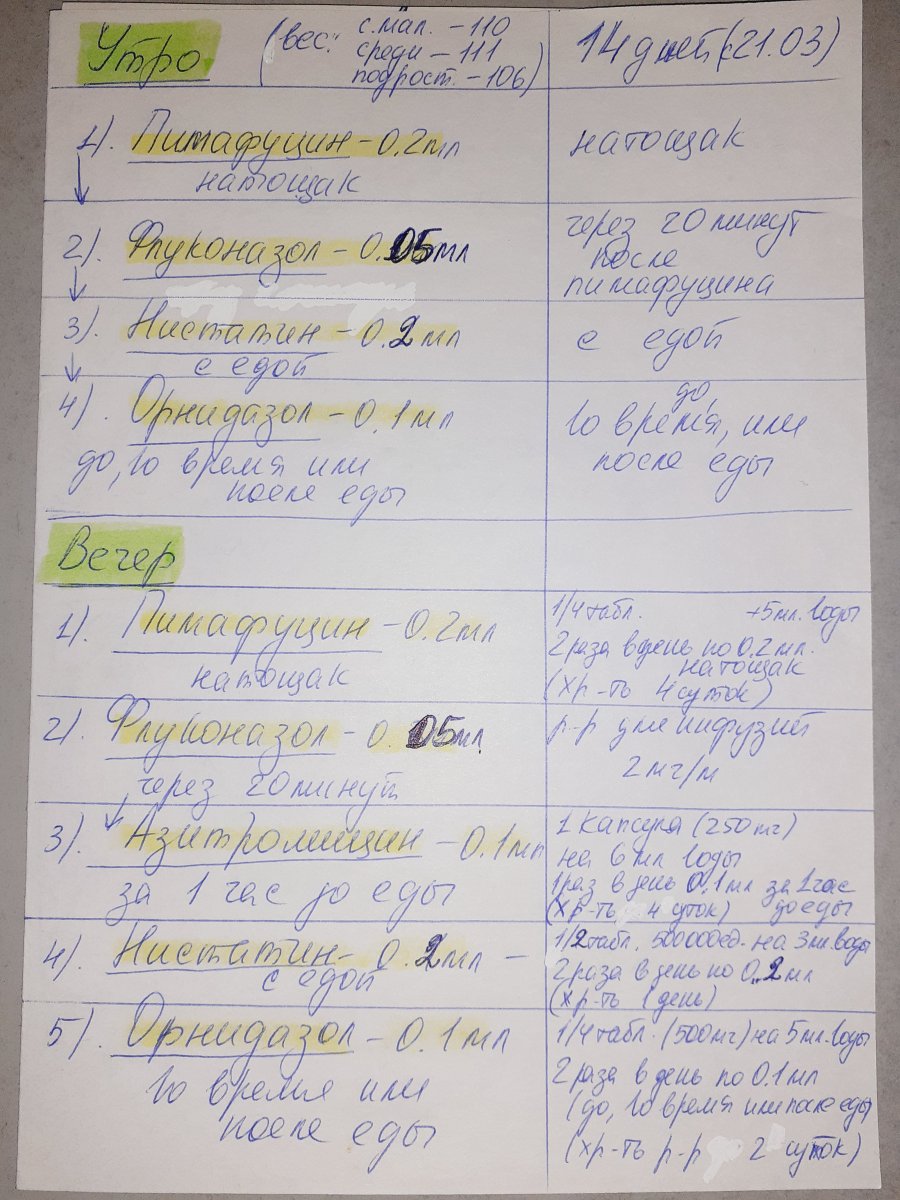 Утро
(вес: с.мал. - 110
среди - 111
подрост. - 106)
14 дней (с 21.03)
1). Пимафуцин - 0.2 мл
натощак
натощак
2). Флуконазол - 0.05 мл
через 20 минут
после
пимафуцина
3). Нистатин - 0.2 мл
с едой
с едой
4). Орнидазол - 0.1 мл
до, во время или
после еды
до,
во время, или
после еды
Вечер
1). Пимафуцин - 0.2 мл
натощак
1/4 табл. +5 мл. воды
2 раза в день по 0.2 мл.
натощак
(хр-ть 4 суток)
2). Флуконазол - 0.05 мл
через 20 минут
р-р инфузий
2 мг/м
3). Азитромицин - 0.1 мл
за 1 час до еды
1 капсула (250 мг)
на 6 мл воды
1 раз в день 0.1 мл за 1 час
(хр-ть 4 суток) до еды
4). Нистатин - 0.2 мл -
с едой
1/2 табл. 500000ед. на 3 мл воды
2 раза в день по 0.2 мл
(хр-ть 1 день)
5). Орнидазол - 0.1 мл
во время или
после еды
1/4 табл. (500 мг) на 5 мл. воды
2 раза в день по 0.1 мл
(до, во время или после еды
(хр-ть р-р 2 суток)